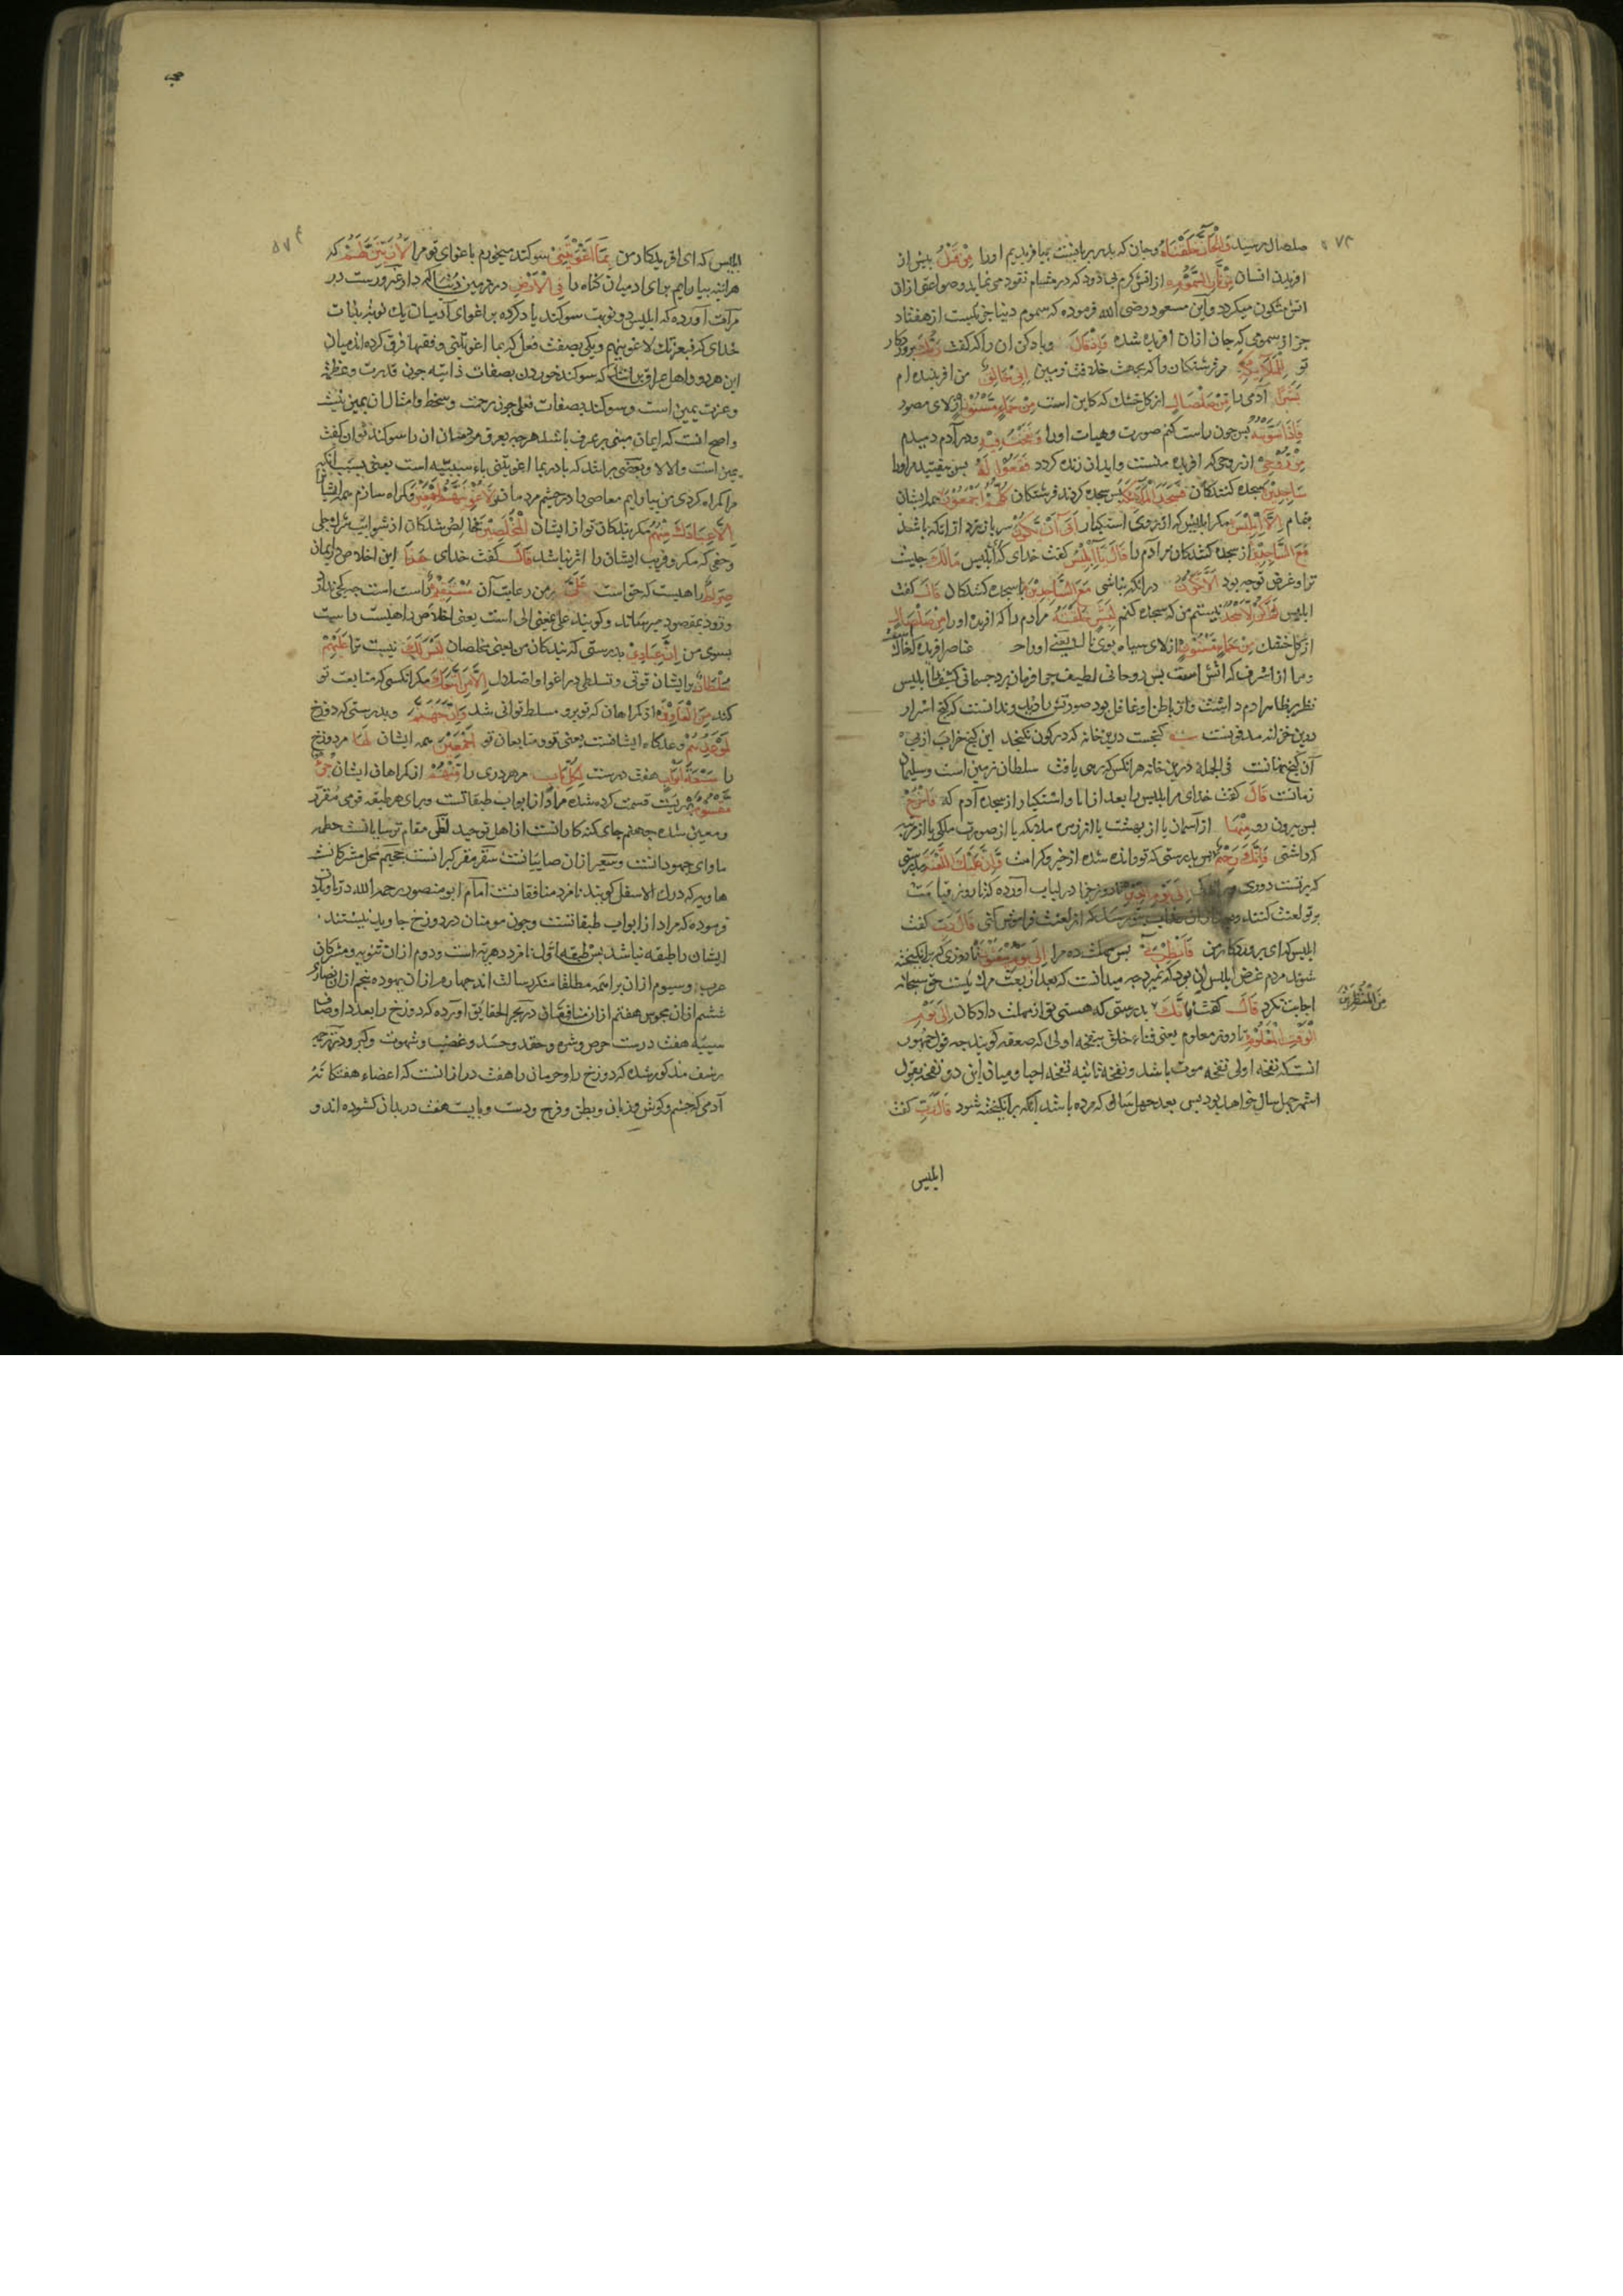 صلصال رسید وَالْجَانَّ خَلَقْنَاهُ و جان که پدر پریانست بیافریدیم او را مِنْ قَبْلُ پیش از
افریدن انسان مِنْ نَارِ السَّمُومِ از اتش کرم بی دود که در مسام نفوذ می نماید و صواعق ازان
اتش متکون میکردد و ابن مسعود رضی الله فرموده که سموم دنیا جزئیست از هفتاد
جز از سمومی که جان ازان افریده شده وَاِذْ قَالَ و یاد کن ان را که کفت رَبُّكَ پروردکار
تو لِلْمَلٰئِكَةِ مر فرشتکان را که بجهت خلافت زمین اِنِّي خَالِقٌ من افریننده ام
بَشَرًا آدمی را مِنْ صَلْصَالٍ از کل خشك که کاین است مِنْ حَمَإٍ مَسْنُونٍ از لای مصور
فَاِذَا سَوَّيْتُهُ پس چون راست کنم صورت و هیات او را وَنَفَخْتُ فِيهِ و در آدم دمیدم
مِنْ رُوحِي از روحی که افریده منست و ابدان زنده کردد فَقَعُوا لَهُ پس بیفتید مر او را
سَاجِدِينَ سجده کنندکان فَسَجَدَ الْمَلٰئِكَةُ پس سجده کردند فرشتکان كُلُّهُمْ اَجْمَعُونَ همه ایشان
بتمام اِلَّا اِبْلِيسَ مکر ابلیس که از روی استکبار اَبٰى اَنْ يَكُونَ سر باز زد از انکه باشد
مَعَ السَّاجِدِينَ از سجده کنندکان مر آدم را قَالَ يَا اِبْلِيسُ کفت خدای که ای ابلیس مَالَكَ چیست
ترا و غرض تو چه بود اَلَّا تَكُونَ در انکه نباشی مَعَ السَّاجِدِينَ با سجده کنندکان قَالَ کفت
ابلیس لَمْ اَكُنْ لِاَسْجُدَ نیستم من که سجده کنم لِبَشَرٍ خَلَقْتَهُ مر ادم را که افریده او را مِنْ صَلْصَالٍ
از کل خشك مِنْ حَمَإٍ مَسْنُونٍ از لای سیاه بوی ناك یعنی او را عناصر افریده که خاك
و مرا از اشرف که اتش است پس روحانی لطیف چرا فرمان برد جسمانی کثیف را ابلیس
نظر بر ظاهر ادم داشت و از باطن او غافل بود صورتش را دید و ندانست که کنج اسرار
درین خزانه مدفونست بیت کنجست درین خانه که در کون نکنجد این کنج خراب از پی
آن کنج نهانست فی الجمله درین خانه هر انکس که رهی یافت سلطان زمین است و سلیمان
زمانست قَالَ کفت خدای مر ابلیس را بعد از ابا و استکبار از سجده آدم که فَاخْرُجْ
پس بیرون رو مِنْهَا از آسمان یا از بهشت یا از زمره ملایکه یا از صورت ملکی یا از مرتبه
که داشتی فَاِنَّكَ رَجِيمٌ پس بدرستی که تو رانده شده از خیر و کرامت وَاِنَّ عَلَيْكَ اللَّعْنَةَ و بدرستی
که بر تست دوری اِلٰى يَوْمِ الدِّينِ تا روز جزا در لباب آورده که تا روز قیامت
بر تو لعنت کنند و بعد ازان عذاب بتو رسد که از لعنت فراموش کنی قَالَ رَبِّ کفت
ابلیس که ای پروردکار من فَاَنْظِرْنِي پس مهلت ده مرا اِلٰى يَوْمِ يُبْعَثُونَ تا روزی که برانکیخته
شوند مردم غرض ابلیس ان بود که نمیرد چه میدانست که بعد از بعث مرك نیست حق سبحانه
اجابت نکرد قَالَ کفت فَاِنَّكَ بدرستی که هستی تو از مهلت دادکان اِلٰى يَوْمِ
مِنَ الْمُنْظَرِينَ
الْوَقْتِ الْمَعْلُومِ تا روز معلوم یعنی فناء خلق بنفخه اولی که صعقه کویند چه قول جمهور
انست که نفخه اولی نفخه موت باشد و نفخه ثانیه نفخه احیا و میان این دو نفخه بقول
اشهر چهل سال خواهد بود پس بعد چهل سال که مرده باشد انکه برانکیخته شود قَالَ رَبِّ کفت
ابلیس
ابلیس که ای افریدکار من بِمَا اَغْوَيْتَنِي سوکند میخورم باغوای تو مرا لَاُزَيِّنَنَّ لَهُمْ که
هر اینه بیارایم برای ادمیان کناه را فِي الْاَرْضِ در زمین دنیا که دار غرورست در
مرآت آورده که ابلیس دو نوبت سوکند یاد کرده بر اغوای آدمیان یك نوبت بذات
خدای که فبعزتك لاغوینهم و یکی بصفت فعل که بما اغویتنی و فقها فرق کرده اند میان
این هر دو و اهل عراق بر انند که سوکند خوردن بصفات ذاتیه چون قدرت و عظمت
و عزت یمین است و سوکند بصفات فعلی چون رحمت و سخط و امثال ان یمین نیست
و اصح انست که ایمان مبنی بر عرف باشد هر چه بعرف مردمان ان را سوکند توان کفت
یمین است و الا لا و بعضی بر انند که با در بما اغویتنی باء سببیه است یعنی بسبب انکه
مرا کمراه کردی من بیارایم معاصی را در چشم مردمان وَلَاُغْوِيَنَّهُمْ اَجْمَعِينَ و کمراه سازم همه ایشان را
اِلَّا عِبَادَكَ مِنْهُمُ مکر بندکان تو از ایشان الْمُخْلَصِينَ خالص شدکان از شوایب شرك جلی
و خفی که مکر و فریب ایشان را اثر نباشد قَالَ کفت خدای هٰذَا این اخلاص و ایمان
صِرَاطٌ راهیست که حق است عَلَيَّ بر من رعایت آن مُسْتَقِيمٌ راست است هیچ کجی ندارد
و زود بمقصود میرساند و کویند علی بمعنی الی است یعنی اخلاص راهیست راست
بسوی من اِنَّ عِبَادِي بدرستی که بندکان من یعنی مخلصان لَيْسَ لَكَ نیست ترا عَلَيْهِمْ
سُلْطَانٌ بر ایشان قوتی و تسلطی در اغوا و اضلال اِلَّا مَنِ اتَّبَعَكَ مکر انکسی که متابعت تو
کند مِنَ الْغَاوِينَ از کمراهان که تو برو مسلط توانی شد وَاِنَّ جَهَنَّمَ و بدرستی که دوزخ
لَمَوْعِدُهُمْ وعدکاه ایشانست یعنی تو و متابعان تو اَجْمَعِينَ همه ایشان لَهَا مر دوزخ
را سَبْعَةُ اَبْوَابٍ هفت درست لِكُلِّ بَابٍ مر هر دری را مِنْهُمْ از کمراهان ایشان جُزْءٌ
مَقْسُومٌ بهریست قسمت کرده شده مراد از ابواب طبقاتست و برای هر طبقه قومی مقرر
و معین شده جهنم جای کنه کارانست از اهل توحید لظی مقام ترسایانست حطمه
ماوای جهودانست و سعیر ازان صابیانست سقر مقر کبرانست جحیم محل مشرکانست
هاویه که درك الاسفل کویند نامزد منافقانست امام ابو منصور رحمه الله در تاویلات
فرموده که مراد از ابواب طبقاتست و چون مومنان در دوزخ جاوید نیستند
ایشان را طبقه نباشد پس طبقه اول نامزد دهریه است و دوم ازان ثنویه و مشرکان
عرب و سیوم ازان براهمه مطلقا منکر رسالت اند چهارم ازان یهود و پنجم ازان نصارا
ششم ازان مجوس هفتم ازان منافقان در بحر الحقایق آورده که دوزخ را بعدد اوصاف
سیئه هفت درست حرص و شره و حقد و حسد و غضب و شهوت و کبر و در ترجمه
رشف مذکور شده که دوزخ را و حرمان را هفت در ازانست که اعضاء هفتکانه
آدمی که چشم و کوش و زبان و بطن و فرج و دست و پایست هفت در بدان کشوده اند و